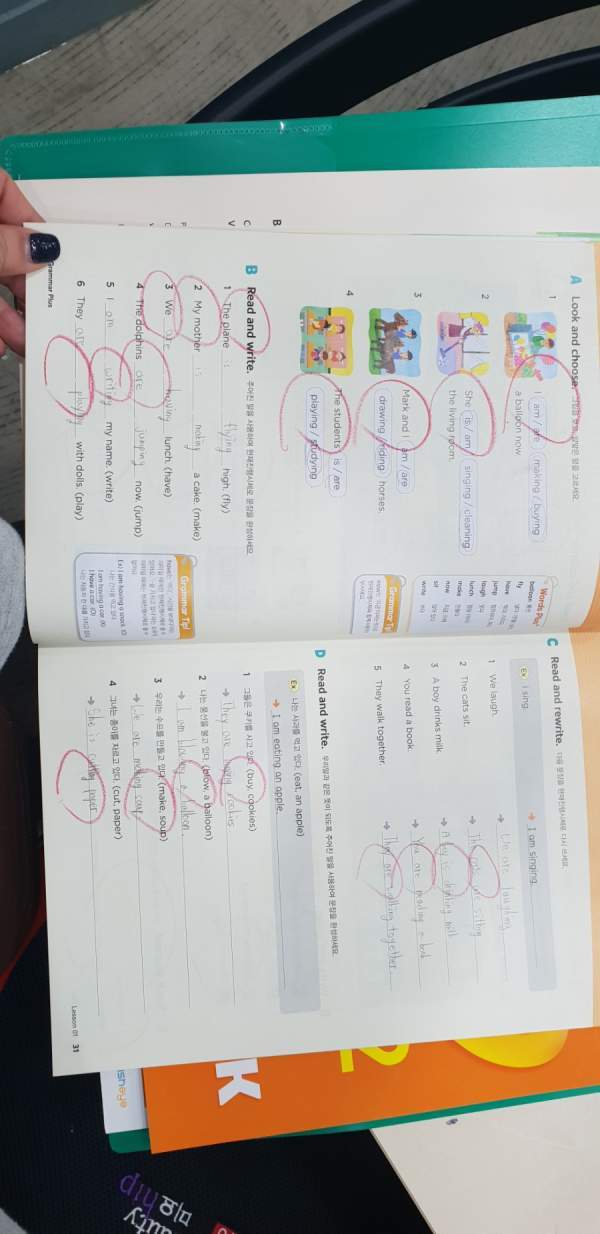 A Look and choose.
1 I am / are making / buying
a balloon now.
2 She is / am singing / cleaning
the living room.
3 Mark and I am / are
drawing / riding horses.
4 The students is / are
playing / studying
Words Plus
balloon 풍선
fly
have
jump
laugh 웃다
lunch 점심 식사
make 만들다
now 지금
sit
write 쓰다
Grammar Tip
B Read and write. 주어진 말을 사용하여 현재진행시제로 문장을 완성하세요.
1 The plane is flying high. (fly)
2 My mother is making a cake. (make)
3 We are having lunch. (have)
4 The dolphins are jumping now. (jump)
5 I am writing my name. (write)
6 They are playing with dolls. (play)
Grammar Tip!
(Ex) I am having a snack. (O)
I am having a car. (X)
I have a car. (O)
Grammar Plus
C Read and rewrite. 다음 문장을 현재진행시제로 다시 쓰세요.
Ex I sing. → I am singing.
1 We laugh. → We are laughing
2 The cats sit. → The cats are sitting
3 A boy drinks milk. → A boy is drinking milk
4 You read a book. → You are reading a book
5 They walk together. → They are walking together.
D Read and write. 우리말과 같은 뜻이 되도록 주어진 말을 사용하여 문장을 완성하세요.
Ex 나는 사과를 먹고 있다. (eat, an apple)
→ I am eating an apple.
1 그들은 쿠키를 사고 있다. (buy, cookies)
→ They are buying cookies
2 나는 풍선을 불고 있다. (blow, a balloon)
→ I am blowing a balloon.
3 우리는 수프를 만들고 있다. (make, soup)
→ We are making soup
4 그녀는 종이를 자르고 있다. (cut, paper)
→ She is cutting paper
Lesson 01 31
B
C